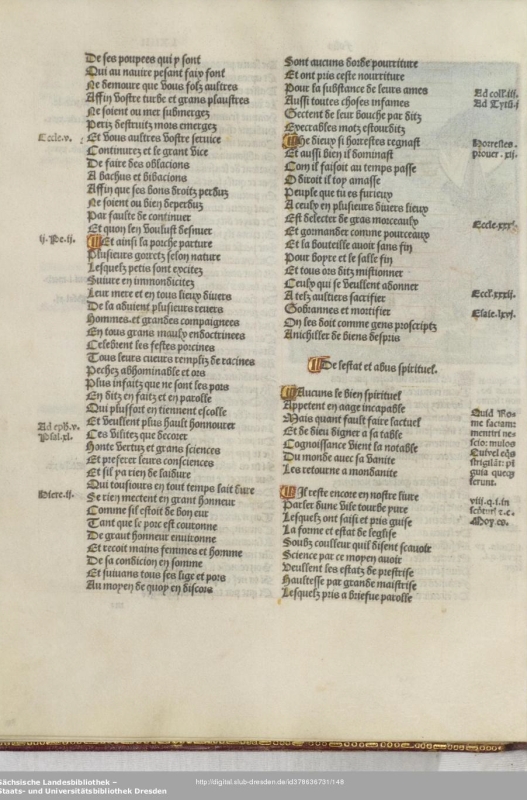 De ses poupees qui y sont
Qui au nauire pesant faix font
Ne demoure que vous folz aultres
Affin vostre turbe et grans plaustres
Ne soient ou mer submergez
Pertz destruitz mors emergez
Eccle.v.
Et vous aultres vostre seruice
Continuez et le grant vice
De faire des oblacions
A bachus et bibacions
Affin que ses bons droitz perduz
Ne soient ou bien deperduz
Par faulte de continuer
Et quon len voulust desnuer
ij. Pe.ij.
Et ainsi la porche parture
Plusieurs gorretz selon nature
Lesquelz petis sont excitez
Suiure en immondicitez
Leur mere et en tous lieux diuers
De la aduient plusieurs reuers
Hommes et grandes compaignees
En tous grans maulx endoctrinees
Celebrent les festes porcines
Tous leurs cueurs rempliz de racines
Pechez abhominable et ors
Plus infaitz que ne sont les pors
En ditz en faitz et en parolle
Qui plussort en tiennent escolle
Ad eph.v.
Et veullent plus hault honnourer
Psal.xl.
Ces vilitez que decorer
Honte vertuz et grans sciences
Et preferer leurs consciences
Et sil ya rien de laidure
Qui tousiours en tout temps lait dure
Hiere.ij.
Se rien mectent en grant honneur
Comme sil estoit de bon eur
Tant que le porc est couronne
De grant honneur enuironne
Et recoit mains femmes et homme
De sa condicion en somme
Et suiuans tous ses lige et pors
Au moyen de quoy en discors
Sont aucuns dorde pourriture
Et ont pris ceste nourriture
Pour la substance de leurs ames
Ad coll.iii.
Aussi toutes choses infames
Ad Tyts.i
Gectent de leur bouche par ditz
Execrables motz estourditz
Ha dieux si horrestes regnast
Horrestes.
Et aussi bien il dominast
prouer. xij.
Com il faisoit au temps passe
O diroit il toy amasse
Peuple que tu es furieux
A ceulx en plusieurs diuers lieux
Est delecter de gras morceaulx
Eccle.xxxi.
Et gormander comme pourceaux
Et la bouteille auoir sans fin
Pour boyre et le salle fin
Et tous ors ditz mistionner
Ceulx qui se veullent adonner
A telz aultiers sacrifier
Eccl.xxxij.
Gobrannes et mortifier
On les doit comme gens proscriptz
Esaie.lxvj.
Anichiller de biens despris
De lestat et abus spirituel.
Aucuns le bien spirituel
Appetent en aage incapable
Mais quant fault faire factuel
Et de dieu digner a sa table
Cognoissance vient la notable
Du monde auec sa vanite
Les retourne a mondanite
Quid Ro=
me faciam:
mentiri nes
scio: mulos
Quiuel eqs
strigilat: pi
guia queqs
ferunt.
Il reste encore en nostre liure
viij.q.i.in
Parler dune vile tourbe yure
Lesquelz ont saisi et pris guise
Moy.co.
La forme et estat de leglise
Soubz coulleur quil disent scauoir
Science par ce moyen auoir
Veullent les estatz de prestrise
Haultesse par grande maistrise
Lesquelz pris a briefue parolle
Sächsische Landesbibliothek –
Staats- und Universitätsbibliothek Dresden
http://digital.slub-dresden.de/id378636731/148